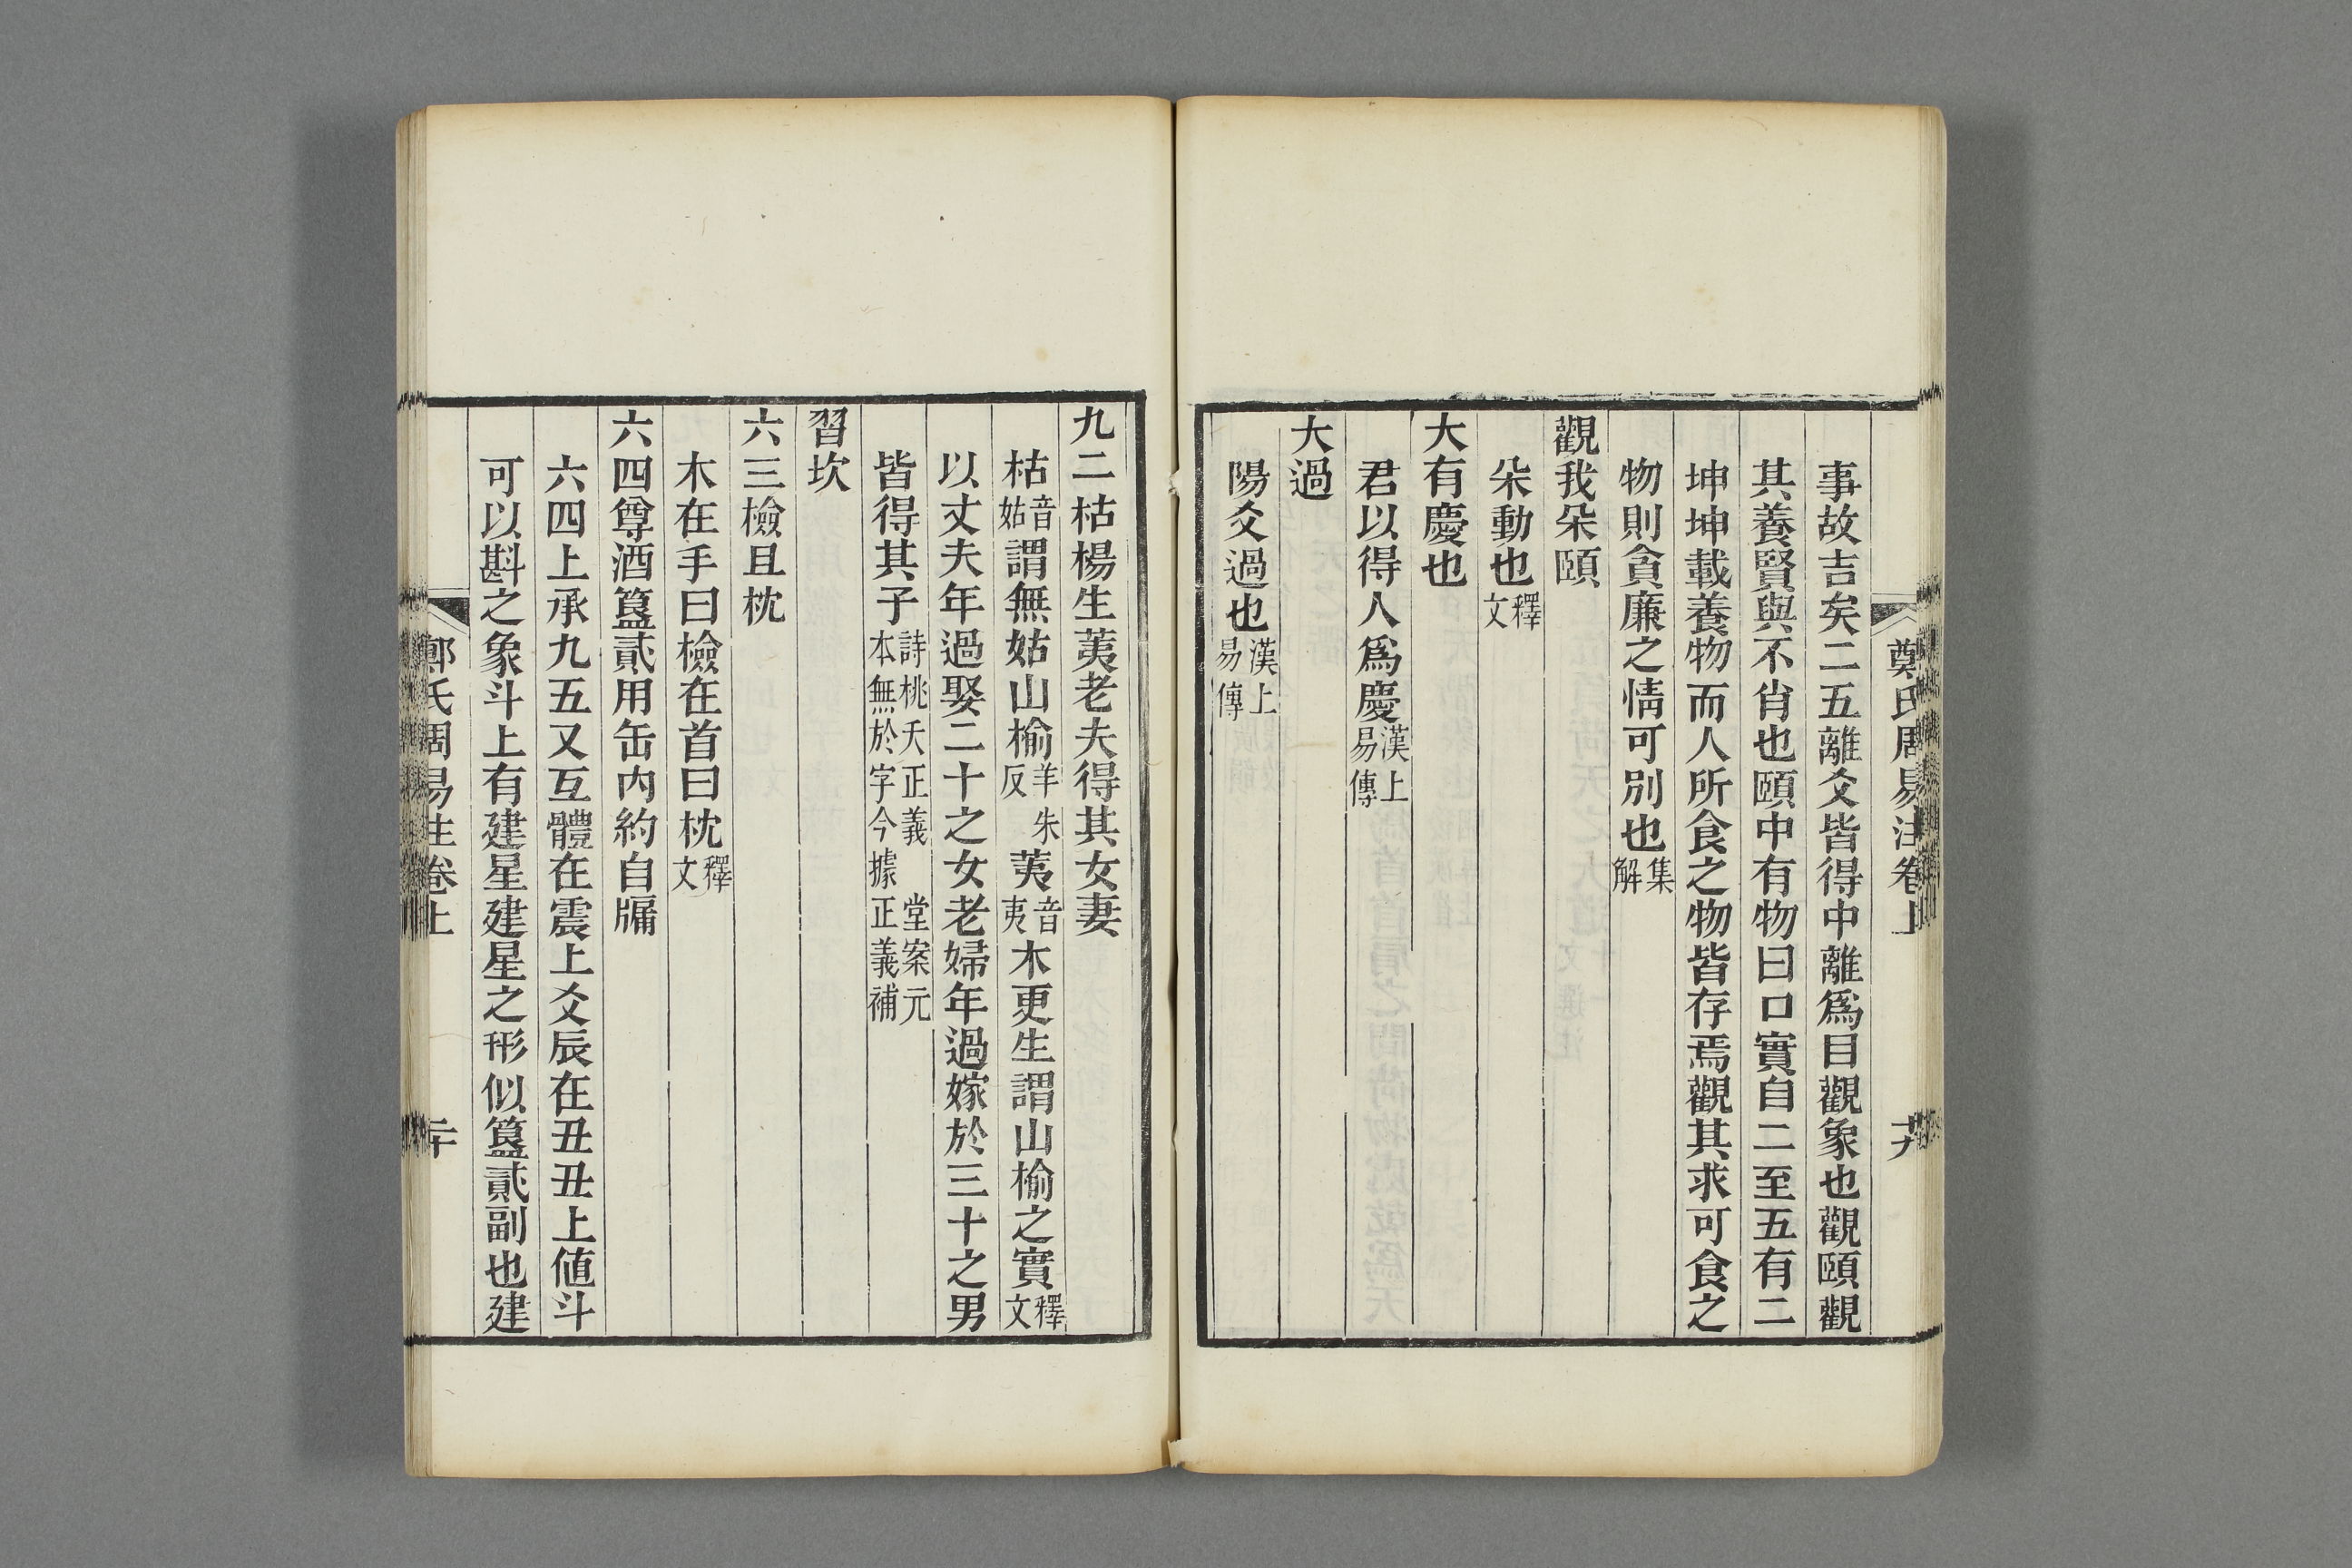 鄭氏周易注卷上 十九
事故吉矣二五離爻皆得中離爲目觀象也觀頤觀
其養賢與不肖也頤中有物曰口實自二至五有二
坤坤載養物而人所食之物皆存焉觀其求可食之
物則貪廉之情可別也集解
觀我朵頤
朵動也釋文
大有慶也
君以得人爲慶漢上易傳
大過
陽爻過也漢上易傳
九二枯楊生荑老夫得其女妻
枯音姑謂無姑山榆羊朱反荑音夷木更生謂山榆之實釋文
以丈夫年過娶二十之女老婦年過嫁於三十之男
皆得其子詩桃夭正義 堂案元本無於字今據正義補
習坎
六三檢且枕
木在手曰檢在首曰枕釋文
六四尊酒簋貳用缶內約自牖
六四上承九五又互體在震上爻辰在丑丑上值斗
可以斟之象斗上有建星建星之形似簋貳副也建
鄭氏周易注卷上 二十